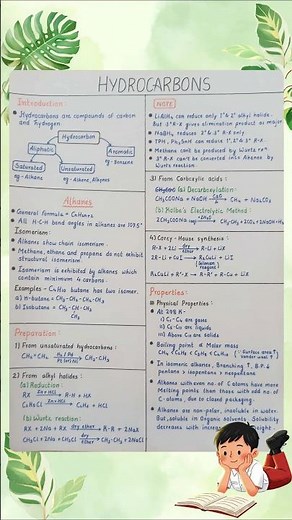 HYDROCARBONS
Introduction:
Hydrocarbons are compounds of carbon
and hydrogen
Hydrocarbon
Aliphatic
Aromatic
eg - Benzene
Saturated
Unsaturated
eg - Alkane
eg - Alkene, Alkynes
Alkanes
General formula = CnH2n+2
All H-C-H bond angles in alkanes are 109.5°
Isomerism:
Alkanes show chain isomerism
Methane, ethane and propane do not exhibit
structural isomerism
Isomerism is exhibited by alkanes which
contain minimum 4 carbons.
Examples - C4H10 butane has two isomer.
a) n-butane = CH3-CH2-CH2-CH3
b) Isobutane = CH3-CH-CH3
CH3
Preparation:
1) From unsaturated hydrocarbons:
CH2=CH2 CH3-CH3
2) From alkyl halides:
(a) Reduction:
RX Zn+HCl R-H + HX
C2H5Cl Zn+HCl C2H6 + HCl
(b) Wurtz reaction:
RX + 2Na + RX dry ether R-R + 2NaX
CH3Cl + 2Na + CH3Cl dry ether CH3-CH3 + 2NaCl
NOTE
LiAlH4 can reduce only 1° & 2° alkyl halides.
But 3° R-X gives elimination product as major.
NaBH4 reduces 3° & 2° R-X only
TPH, Ph3SnH can reduce 1°, 2° & 3° R-X
Methane can't be produced by Wurtz rxn
3° R-X can't be converted into Alkane by
Wurtz reaction
3) From Carboxylic acids:
(a) Decarboxylation:
CH3COONa + NaOH CaO CH4 + Na2CO3
(b) Kolbe's Electrolytic Method:
4) Corey-House synthesis:
R-X + 2Li dry ether R-Li + LiX
2R-Li + CuI R2CuLi + LiI
(Gilman reagent)
R2CuLi + R'-X R-R' + R-Cu + LiX
Properties:
Physical Properties:
At 298 K-
i) C1-C4 are gases
ii) C5-C17 are liquids
iii) Above C18 are Solids
Boiling point ∝ Molar mass
CH4 < C2H6 < C3H8 < C4H10
In isomeric alkanes, Branching ↑, B.P ↓
pentane > isopentane > neopentane
Alkanes with even no of C atoms have more
Melting points than those with odd no of
C-atoms, due to closed packaging.
Alkanes are non-polar, insoluble in water.
But, soluble in Organic solvents. Solubility
decreases with